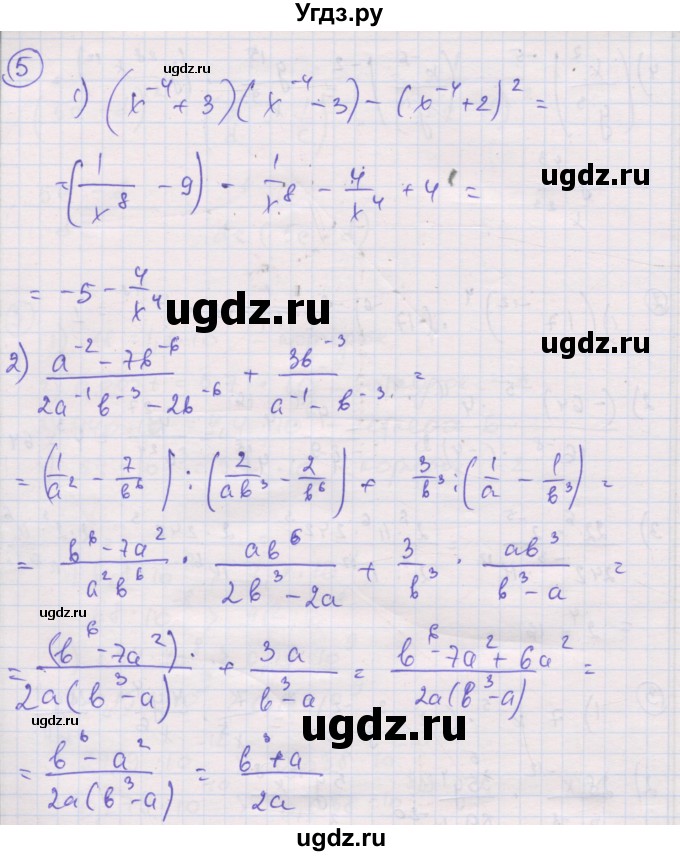 Угдз.ру
5
ugdz.ru
1) (x⁻⁴ + 3)(x⁻⁴ - 3) - (x⁻⁴ + 2)² =
= (1/x⁸ - 9) - 1/x⁸ - 4/x⁴ + 4 =
ugdz.ru
= -5 - 4/x⁴
ugdz.ru
2) (a⁻² - 7b⁻⁶)/(2a⁻¹b⁻³ - 2b⁻⁶) + 3b⁻³/(a⁻¹ - b⁻³) =
= (1/a² - 7/b⁶) : (2/ab³ - 2/b⁶) + 3/b³ : (1/a - 1/b³) =
= (b⁶ - 7a²)/(a²b⁶) · ab⁶/(2b³ - 2a) + 3/b³ · ab³/(b³ - a) =
ugdz.ru
= (b⁶ - 7a²)·/(2a(b³ - a)) + 3a/(b³ - a) = (b⁶ - 7a² + 6a²)/(2a(b³ - a)) =
ugdz.ru
= (b⁶ - a²)/(2a(b³ - a)) = (b³ + a)/2a
ugdz.ru
ugdz.ru